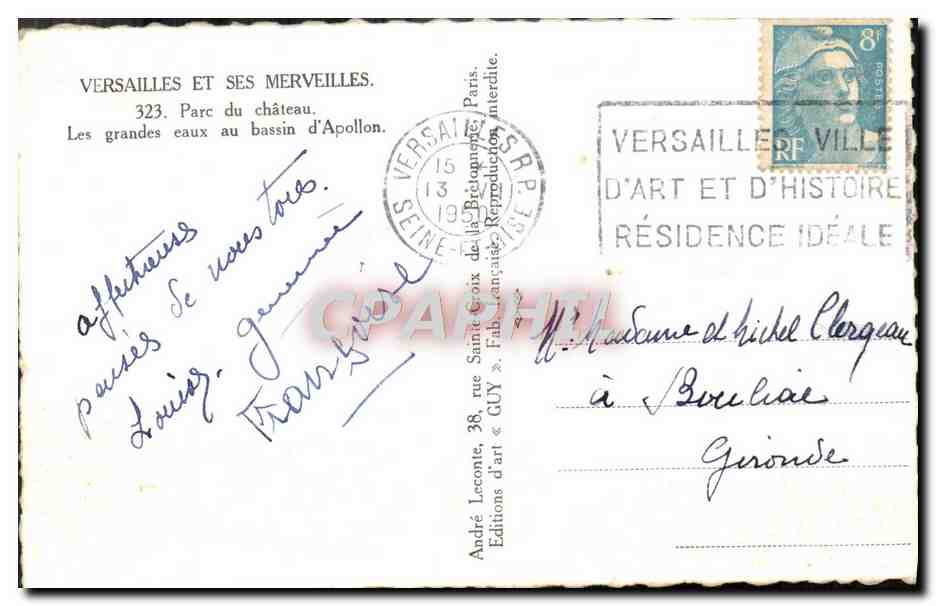 VERSAILLES ET SES MERVEILLES.
323. Parc du château.
Les grandes eaux au bassin d'Apollon.
affectueuses
pensés de nous tous.
Louise. Geneviève
Françoise
André Leconte, 38, rue Sainte-Croix de la Bretonnerie, Paris.
Editions d'art « GUY ». Fab. Française. Reproduction interdite.
VERSAILLES R.P.
15
13 VII
1950
SEINE-ET-OISE
8F
POSTES
RF
VERSAILLES VILLE
D'ART ET D'HISTOIRE
RÉSIDENCE IDÉALE
CPAPHIL
Mr Madame et Michel Clergeau
à Bouliac
Gironde